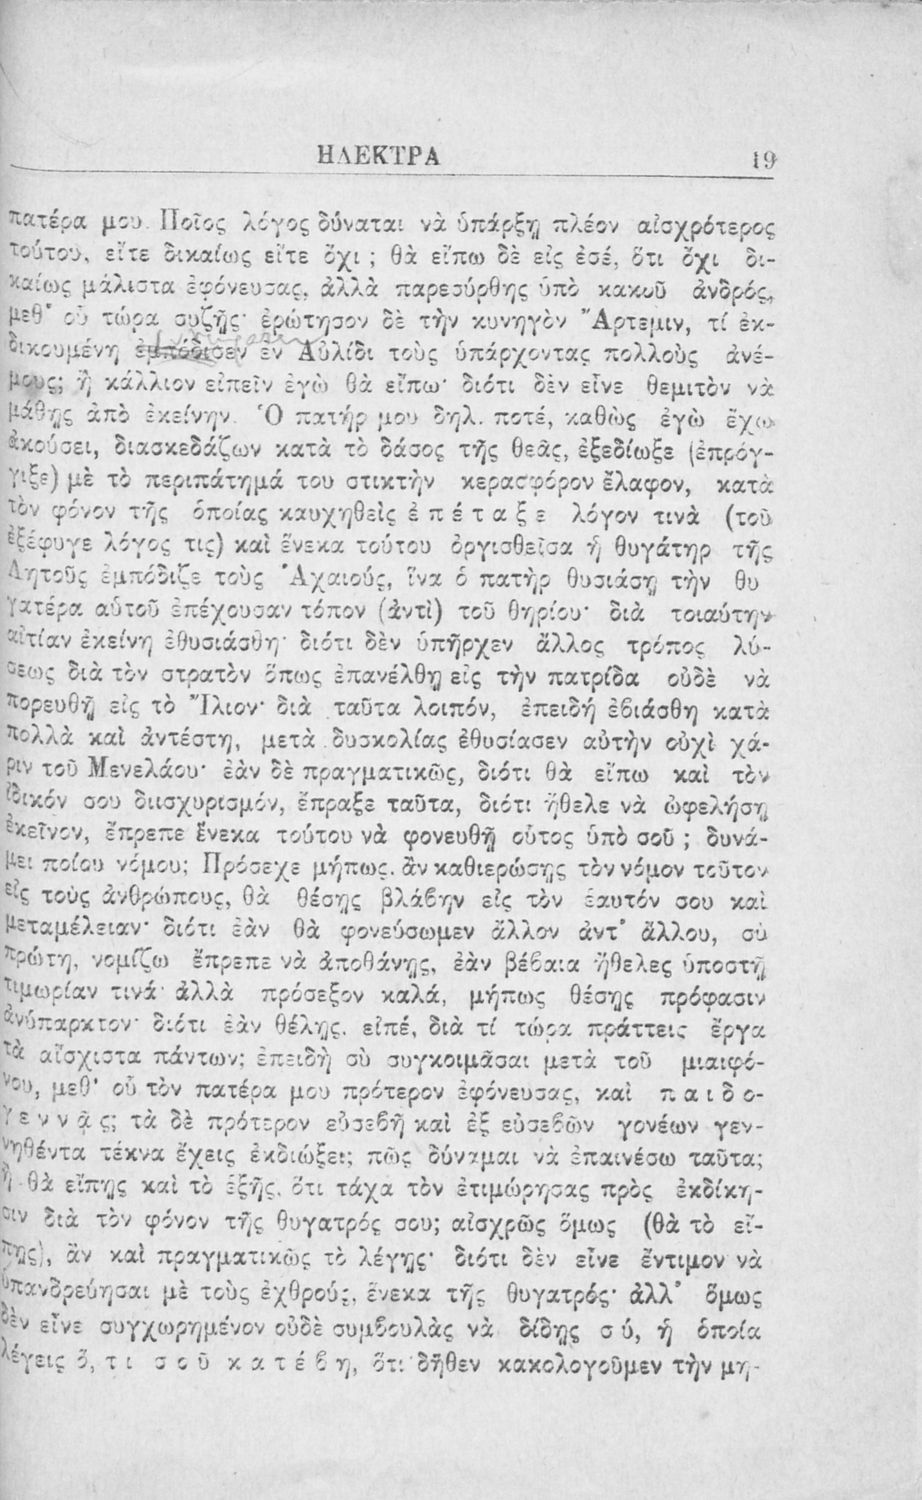 ΗΛΕΚΤΡΑ 19
πατέρα μου. Ποῖος λόγος δύναται νὰ ὑπάρξῃ πλέον αἰσχρότερος
τούτου, εἴτε δικαίως εἴτε ὄχι ; θὰ εἴπω δὲ εἰς ἐσέ, ὅτι ὄχι δι-
καίως μάλιστα ἐφόνευσας, ἀλλὰ παρεσύρθης ὑπὸ κακοῦ ἀνδρός,
μεθ' οὗ τώρα συζῇς· ἐρώτησον δὲ τὴν κυνηγὸν Ἄρτεμιν, τί ἐκ-
δικουμένη ἐμπόδισεν ἐν Αὐλίδι τοὺς ὑπάρχοντας πολλοὺς ἀνέ-
μους; ἢ κάλλιον εἰπεῖν ἐγὼ θὰ εἴπω· διότι δὲν εἶνε θεμιτὸν νὰ
μάθῃς ἀπὸ ἐκείνην. Ὁ πατήρ μου δηλ. ποτέ, καθὼς ἐγὼ ἔχω
ἀκούσει, διασκεδάζων κατὰ τὸ δάσος τῆς θεᾶς, ἐξεδίωξε (ἐπρόγ-
γιξε) μὲ τὸ περιπάτημά του στικτὴν κερασφόρον ἔλαφον, κατὰ
τὸν φόνον τῆς ὁποίας καυχηθεὶς ἐ π έ τ α ξ ε λόγον τινὰ (τοῦ
ἐξέφυγε λόγος τις) καὶ ἕνεκα τούτου ὀργισθεῖσα ἡ θυγάτηρ τῆς
Λητοῦς ἐμπόδιζε τοὺς Ἀχαιούς, ἵνα ὁ πατὴρ θυσιάσῃ τὴν θυ
γατέρα αὑτοῦ ἐπέχουσαν τόπον (ἀντὶ) τοῦ θηρίου· διὰ τοιαύτην
αἰτίαν ἐκείνη ἐθυσιάσθη· διότι δὲν ὑπῆρχεν ἄλλος τρόπος λύ-
σεως διὰ τὸν στρατὸν ὅπως ἐπανέλθῃ εἰς τὴν πατρίδα οὐδὲ νὰ
πορευθῇ εἰς τὸ Ἴλιον· διὰ ταῦτα λοιπόν, ἐπειδή ἐβιάσθη κατὰ
πολλὰ καὶ ἀντέστη, μετὰ δυσκολίας ἐθυσίασεν αὐτὴν οὐχὶ χά-
ριν τοῦ Μενελάου· ἐὰν δὲ πραγματικῶς, διότι θὰ εἴπω καὶ τὸν
ἰδικόν σου διισχυρισμόν, ἔπραξε ταῦτα, διότι ἤθελε νὰ ὠφελήσῃ
ἐκεῖνον, ἔπρεπε ἕνεκα τούτου νὰ φονευθῇ οὗτος ὑπὸ σοῦ ; δυνά-
μει ποίου νόμου; Πρόσεχε μήπως, ἂν καθιερώσῃς τὸν νόμον τοῦτον
εἰς τοὺς ἀνθρώπους, θὰ θέσῃς βλάβην εἰς τὸν ἑαυτόν σου καὶ
μεταμέλειαν· διότι ἐὰν θὰ φονεύσωμεν ἄλλον ἀντ' ἄλλου, σὺ
πρώτη, νομίζω ἔπρεπε νὰ ἀποθάνῃς, ἐὰν βέβαια ἤθελες ὑποστῇ
τιμωρίαν τινά· ἀλλὰ πρόσεξον καλά, μήπως θέσῃς πρόφασιν
ἀνύπαρκτον· διότι ἐὰν θέλῃς, εἰπέ, διὰ τί τώρα πράττεις ἔργα
τὰ αἴσχιστα πάντων; ἐπειδὴ σὺ συγκοιμᾶσαι μετὰ τοῦ μιαιφό-
νου, μεθ' οὗ τὸν πατέρα μου πρότερον ἐφόνευσας, καὶ π α ι δ ο-
γ ε ν ν ᾷ ς; τὰ δὲ πρότερον εὐσεβῆ καὶ ἐξ εὐσεβῶν γονέων γεν-
νηθέντα τέκνα ἔχεις ἐκδιώξει; πῶς δύναμαι νὰ ἐπαινέσω ταῦτα;
ἢ θὰ εἴπῃς καὶ τὸ ἑξῆς, ὅτι τάχα τὸν ἐτιμώρησας πρὸς ἐκδίκη-
σιν διὰ τὸν φόνον τῆς θυγατρός σου; αἰσχρῶς ὅμως (θὰ τὸ εἴ-
πῃς), ἂν καὶ πραγματικῶς τὸ λέγῃς· διότι δὲν εἶνε ἔντιμον νὰ
ὑπανδρεύησαι μὲ τοὺς ἐχθρούς, ἕνεκα τῆς θυγατρός· ἀλλ' ὅμως
δὲν εἶνε συγχωρημένον οὐδὲ συμβουλὰς νὰ δίδῃς σ ύ, ἡ ὁποία
λέγεις ὅ, τ ι σ ο ῦ κ α τ έ β η, ὅτι δῆθεν κακολογοῦμεν τὴν μη-